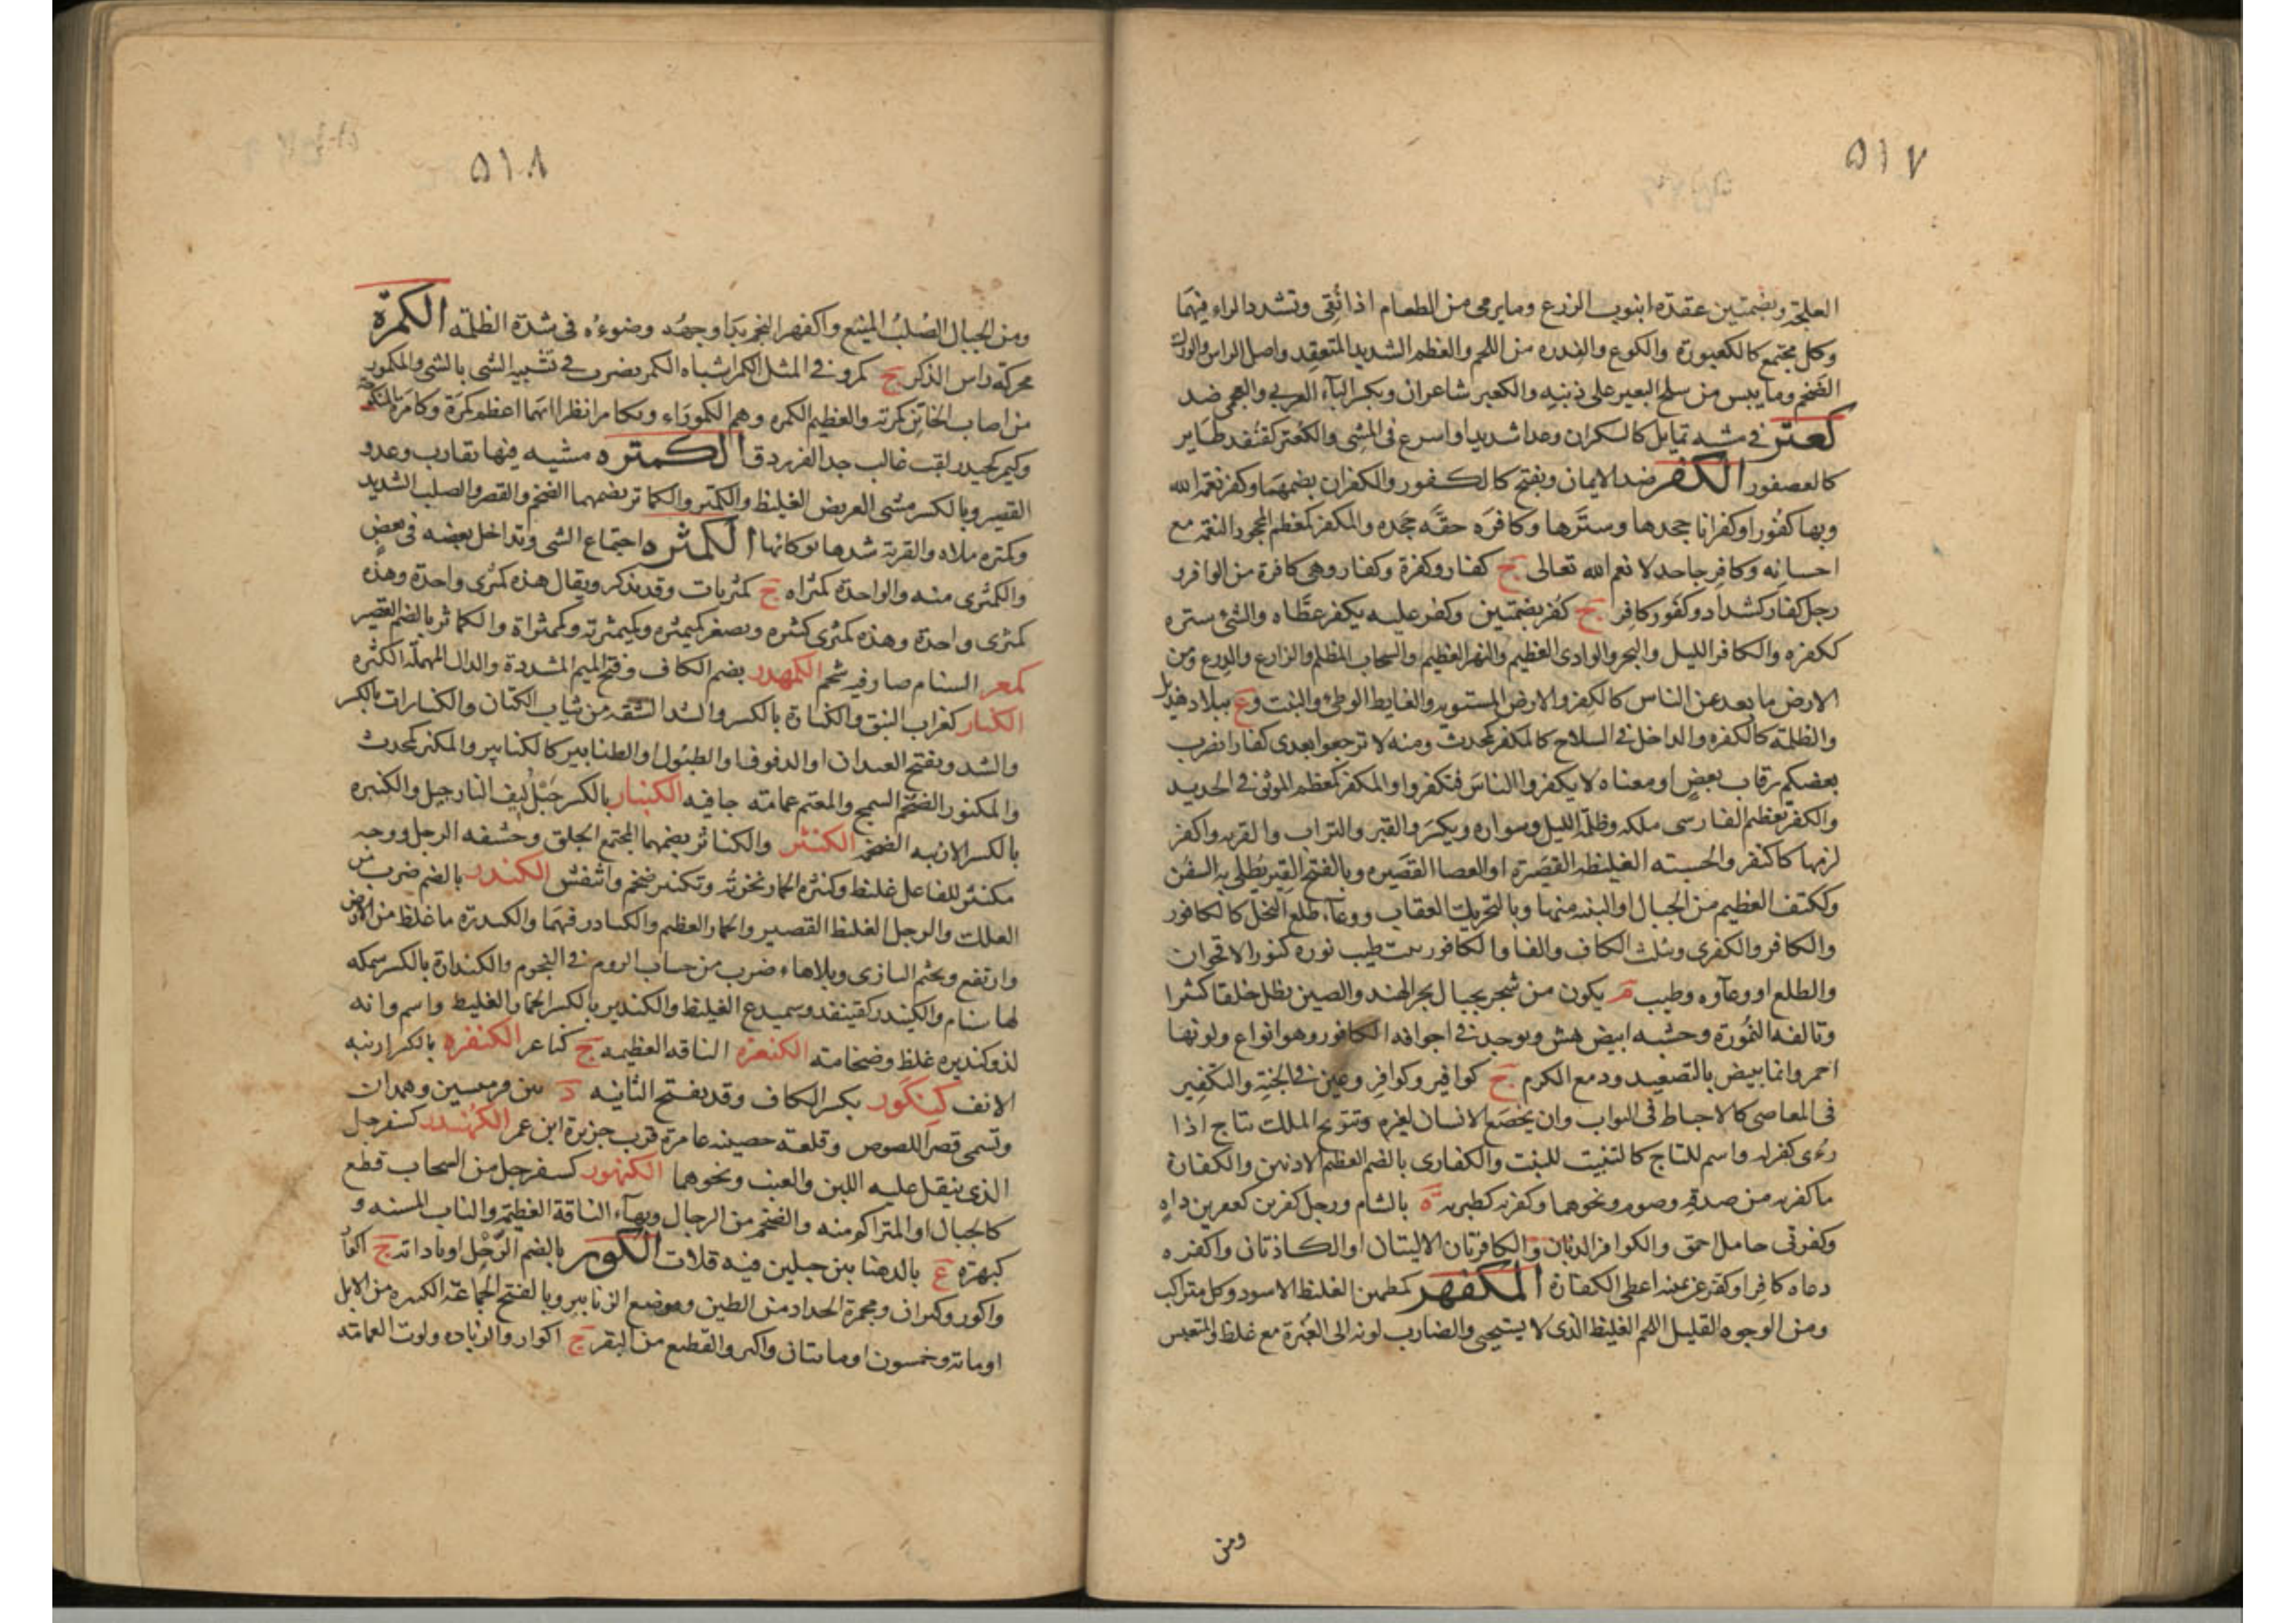 ٥١٧
العلجة وبضمتين عقدة انبوب الزرع وما يرمى من الطعام اذا نُقى وتشدد الراء فيهما
وكل مجتمع كالكعبورة والكوع والفدره من اللحم والعظم الشديد المتعقد واصل الراس والورك
الضخم وما يبس من سلح البعير على ذنبه والكعبر شاعران وبكسر الباء العربي والعجمى ضد
كعتر فى مشيه تمايل كالسكران وعدا شديدا واسرع فى المشى والكُعتر كقنفذ طاير
كالعصفور الكفر ضد الايمان ويفتح كالكفور والكفران بضمهما وكفر نعمة الله
وبها كفورا وكفرانا جحدها وسترها وكافره حقه جحده والمكفر كمعظم المجحود النعمة مع
احسانه وكافر جاحد لانعم الله تعالى ج كفار وكفرة وكفار وهى كافرة من الوافر
رجل كفار كشداد وكفور كافر ج كفر بضمتين وكفر عليه يكفر غطاه والشئ ستره
ككفره والكافر الليل والبحر والوادى العظيم والنهر العظيم والسحاب المظلم والزارع والدرع ومن
الارض ما بعد عن الناس كالكفر والارض المستوية والغايط الوطئ والنبت وع ببلاد هذيل
والظلمة كالكفره والداخل فى السلاح كالمكفر كمحدث ومنه لا ترجعوا بعدى كفارا يضرب
بعضكم رقاب بعض او معناه لا يكفروا الناس فتكفروا والمكفر كمعظم الموثق فى الحديد
والكفر تعظيم الفارسى ملكه وظلمة الليل وسواده ويكسر والقبر والتراب والقرية واكفر
لزمها كاكتفر والخشبه الغليظه القصيرة او العصا القصيره وبالضم القير يطلى به السفن
وككتف العظيم من الجبال او الثنيه منها وبالتحريك العقاب ووعاء طلع النخل كالكافور
والكافر والكفرى وتثلث الكاف والفا والكافور نبت طيب نوره كنور الاقحوان
والطلع او وعاوه وطيب م يكون من شجر بجبال بحر الهند والصين يظل خلقا كثيرا
وتالفه النمورة وخشبه ابيض هش ويوجد فى اجوافه الكافور وهو انواع ولونها
احمر وانما يبيض بالتصعيد ودمع الكرم ج كوافير وكوافر وعين فى الجنة والتكفير
فى المعاصى كالاحباط فى الثواب وان يخضع الانسان لغيره وتتويج الملك بتاج اذا
رءى كفر له واسم للتاج كالتنبيت للنبت والكفارى بالضم العظيم الاذنين والكفارة
ما كفر به من صدقة وصوم ونحوهما وكفريه كطبريه ة بالشام ورجل كفرين كعفرين داه
وكفرنى خامل احمق والكوافر الدنان والكافرتان الاليتان او الكاذتان واكفره
دعاه كافرا وكفر عن يمينه اعطى الكفارة المكفهر كمطمئن الغليظ الاسود وكل متراكب
ومن الوجوه القليل اللحم الغليظ الذى لا يستحيى والضارب لونه الى الغبرة مع غلظ والمتعبس
ومن
٥١٨
ومن الجبال الصلب المنيع واكفهر النجم بدا وجهه وضوءه فى شدة الظلمه الكمرة
محركة راس الذكر ج كمر وفى المثل الكمر اشباه الكمر يضرب فى تشبيه الشى بالشى والمكمور
من اصاب الخاتن كمرته والعظيم الكمره وهم الكموراء وتكامرا نظرا ايهما اعظم كمرة وكامره
وكيمر كحيدر لقب غالب جد الفرزدق الكمتره مشيه فيها تقارب وعدو
القصير وبالكسر مشى العريض الغليظ والكُمتر والكماتر بضمهما الضخم والقصير والصلب الشديد
وكمتره ملاه والقربة شدها بوكائها الكمثره اجتماع الشى وتداخل بعضه فى بعض
والكمثرى منه والواحدة كمثراه ج كمثريات وقد يذكر ويقال هذه كمثرى واحدة وهذه
كمثرى واحدة وهذه كمثرى كثيره ويصغر كميمثره وكميمثرية وكميثراة والكماثر بالضم القصير
كمعر السنام صار فيه شحم الكمهدر بضم الكاف وفتح الميم المشددة والدال المهملة الكثره
الكنار كغراب النبق والكنارة بالكسر والشد الشقة من ثياب الكتان والكنارات بالكسر
والشد وبفتح العيدان او الدفوف او الطبول او الطنابير كالكنانير والمكنر كمحدث
والمكنور الضخم السمج والمعتم عمامته جافيه الكنبار بالكسر حبل ليف النارجيل والكنبره
بالكسر الارنبه الضخم الكنثر والكناثر بضمهما المجتمع الخلق وحشفه الرجل ووجه
مكنثر للفاعل غليظ وكنثرة الحمار نخرته وتكنبر ضخم وانتفش الكندر بالضم ضرب من
العلك والرجل الغليظ القصير والحمار العظيم والكنادر فيهما والكندرة ما غلظ من الارض
وارتفع ومجثم البازى وبلا هاء ضرب من حساب الروم فى النجوم والكندارة بالكسر سمكه
لها سنام والكنيدر كقنيفد وسميدع الغليظ والكندير بالكسر الحمار الغليظ واسم وانه
لذو كنديره غلظ وضخامته الكنعره الناقه العظيمه ج كناعر الكنفره بالكسر ارنبه
الانف كِنكَور بكسر الكاف وقد يفتح الثانيه د بين قرميسين وهمدان
وتسمى قصر اللصوص وقلعة حصينه عامرة قرب جزيرة ابن عمر الكنهدر كسفرجل
الذى ينقل عليه اللبن والعنب ونحوهما الكنهور كسفرجل من السحاب قطع
كالجبال او المتراكم منه والضخم من الرجال وبهاء الناقة العظيمة والناب المسنه و
كنهره ع بالدهنا بين جبلين فيه قلات الكور بالضم الرحل او باداته ج اكوار
واكور وكيران ومجمرة الحداد من الطين وموضع الزنابير وبالفتح الجماعة الكثيره من الابل
او ماية وخمسون او مايتان واكثر والقطيع من البقر ج اكوار والزياده ولوث العمامة